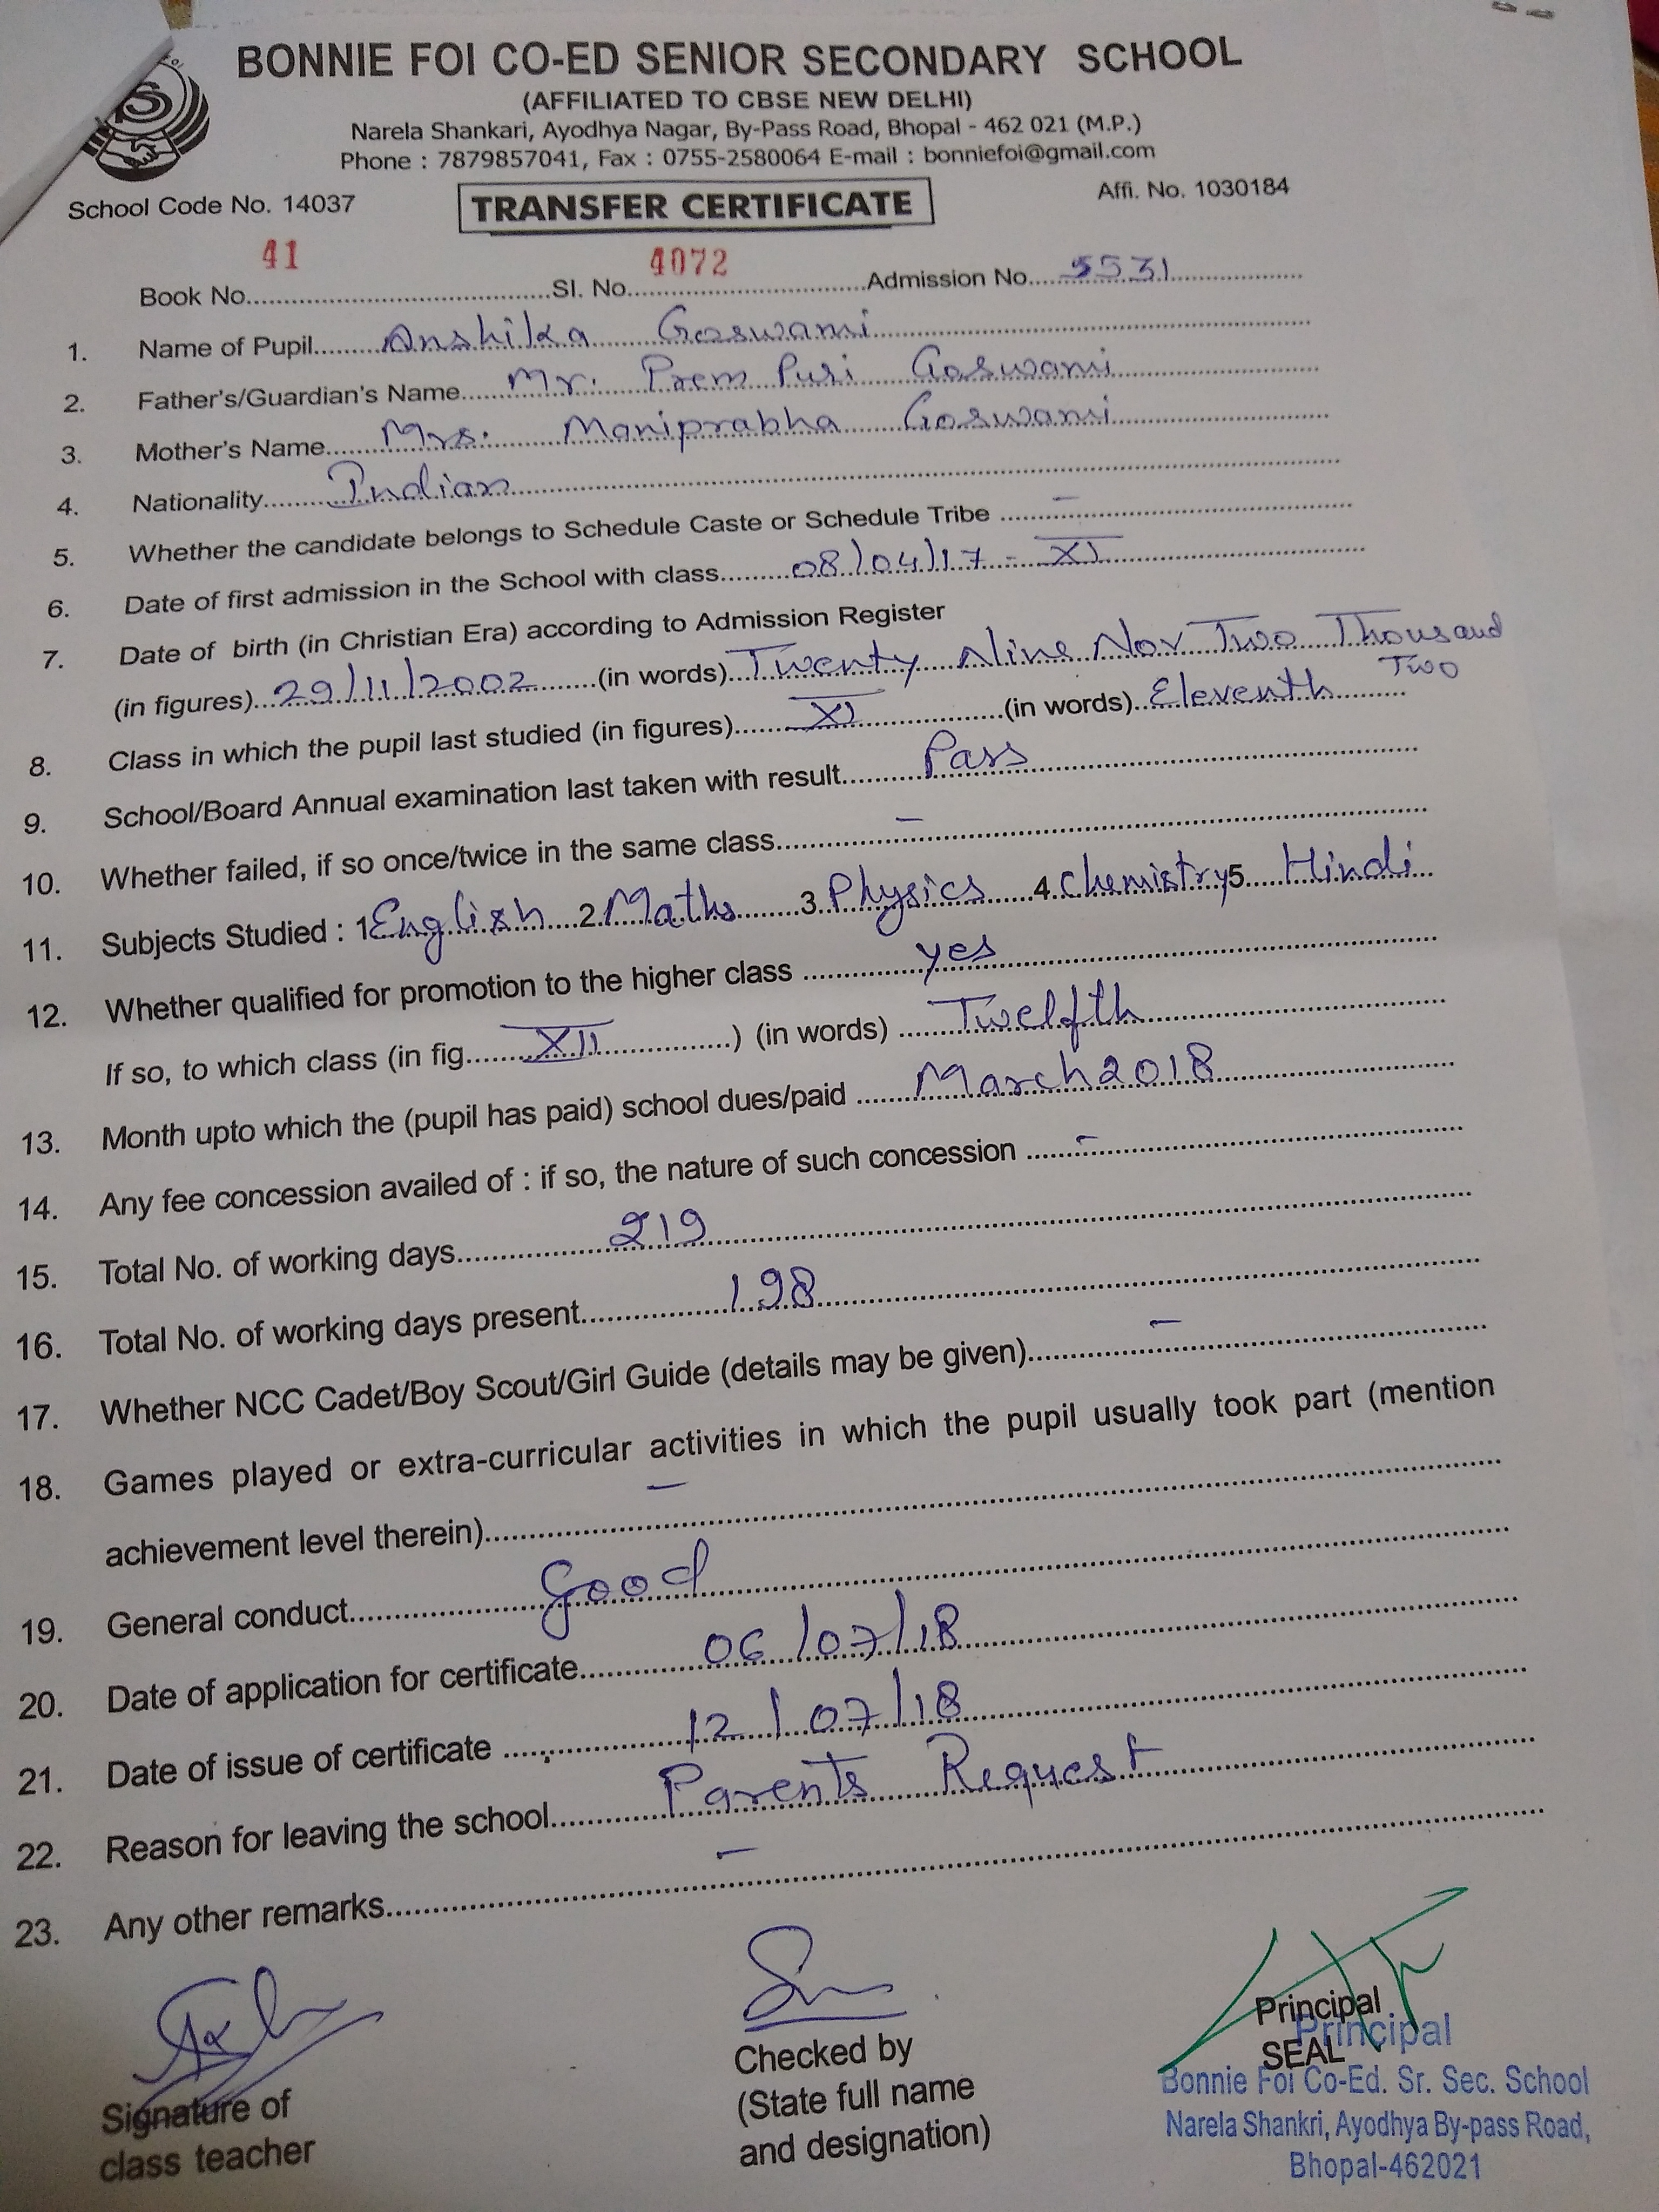 BONNIE FOI CO-ED SENIOR SECONDARY SCHOOL
(AFFILIATED TO CBSE NEW DELHI)
Narela Shankari, Ayodhya Nagar, By-Pass Road, Bhopal - 462 021 (M.P.)
Phone : 7879857041, Fax : 0755-2580064 E-mail : bonniefoi@gmail.com
School Code No. 14037 TRANSFER CERTIFICATE Affi. No. 1030184
Book No. 41 Sl. No. 4072 Admission No. 5531
1. Name of Pupil Anshika Goswami
2. Father's/Guardian's Name Mr. Prem Puri Goswami
3. Mother's Name Mrs. Maniprabha Goswami
4. Nationality Indian
5. Whether the candidate belongs to Schedule Caste or Schedule Tribe -
6. Date of first admission in the School with class 08/04/17 - XI
7. Date of birth (in Christian Era) according to Admission Register
(in figures) 29/11/2002 (in words) Twenty Nine Nov Two Thousand Two
8. Class in which the pupil last studied (in figures) XI (in words) Eleventh
9. School/Board Annual examination last taken with result Pass
10. Whether failed, if so once/twice in the same class -
11. Subjects Studied : 1 English 2. Maths 3. Physics 4. Chemistry 5. Hindi
12. Whether qualified for promotion to the higher class yes
If so, to which class (in fig. XII ) (in words) Twelfth
13. Month upto which the (pupil has paid) school dues/paid March 2018
14. Any fee concession availed of : if so, the nature of such concession -
15. Total No. of working days 219
16. Total No. of working days present 198
17. Whether NCC Cadet/Boy Scout/Girl Guide (details may be given) -
18. Games played or extra-curricular activities in which the pupil usually took part (mention
achievement level therein) -
19. General conduct Good
20. Date of application for certificate 06/07/18
21. Date of issue of certificate 12/07/18
22. Reason for leaving the school Parents Request
23. Any other remarks -
Signature of
class teacher
Checked by
(State full name
and designation)
Principal
SEAL
Principal
Bonnie Foi Co-Ed. Sr. Sec. School
Narela Shankri, Ayodhya By-pass Road,
Bhopal-462021